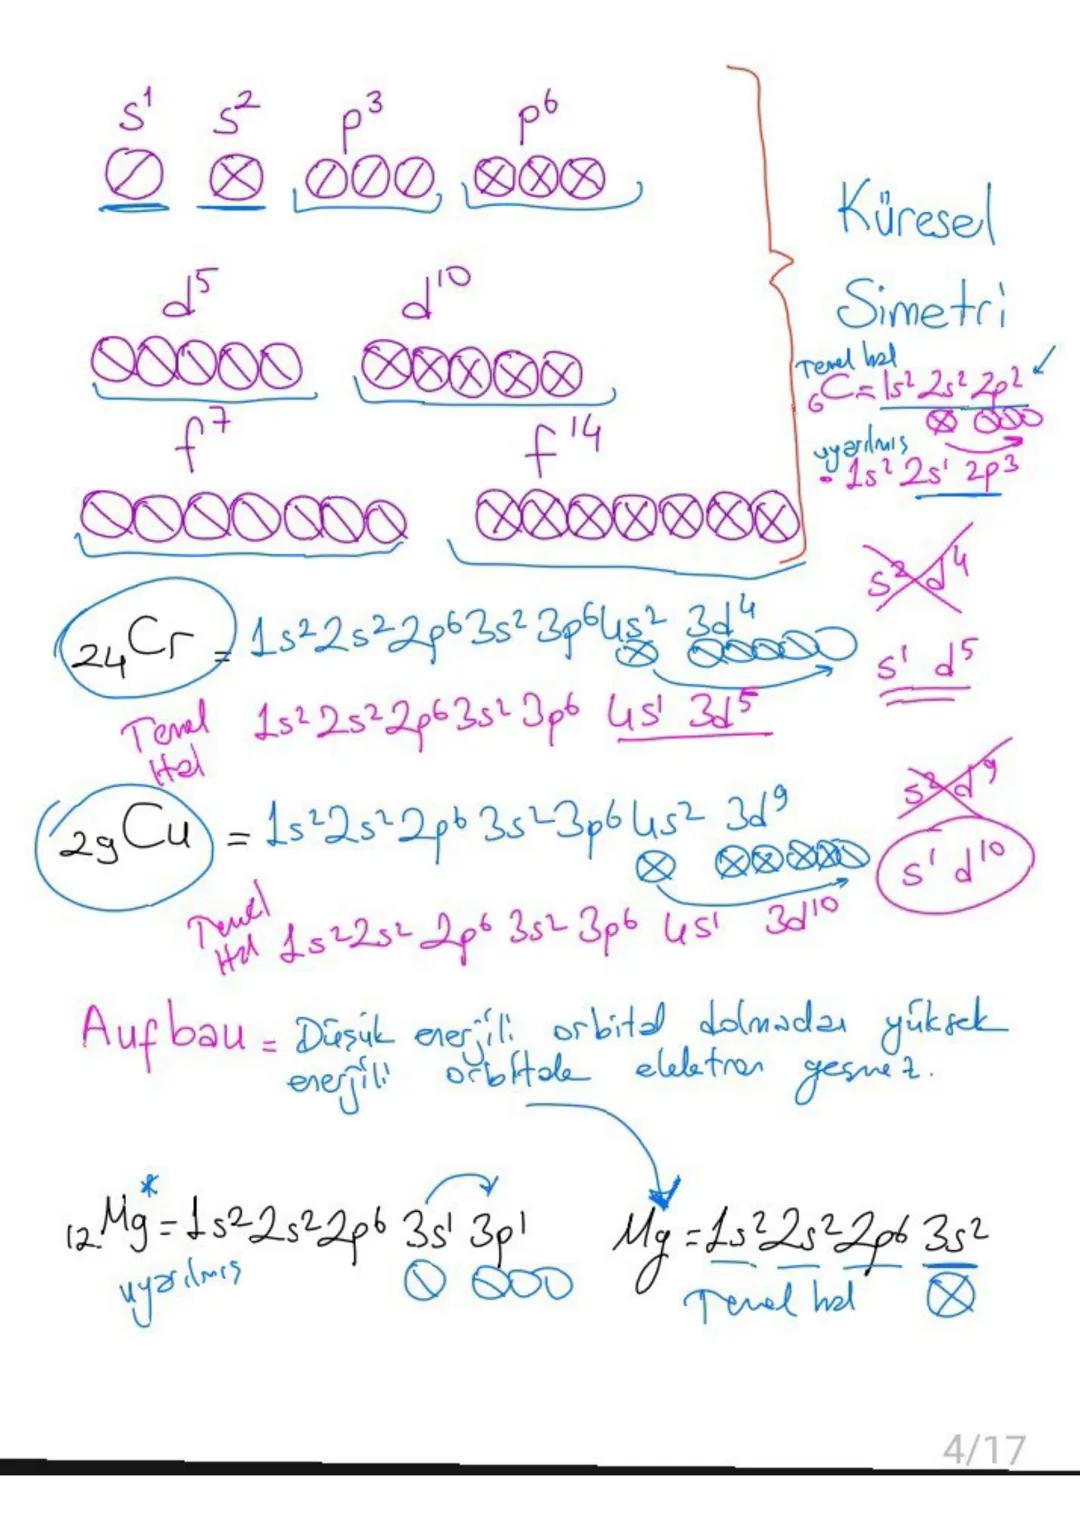 s¹ s² p³ p⁶
d⁵ d¹⁰
f⁷ f¹⁴
Küresel
Simetri
Temel hal
₆C = 1s² 2s² 2p²
uyarılmış
1s² 2s¹ 2p³
s² d⁴
s¹ d⁵
₂₄Cr = 1s² 2s² 2p⁶ 3s² 3p⁶ 4s² 3d⁴
Temel
Hal
1s² 2s² 2p⁶ 3s² 3p⁶ 4s¹ 3d⁵
s² d⁹
s¹ d¹⁰
₂₉Cu = 1s² 2s² 2p⁶ 3s² 3p⁶ 4s² 3d⁹
Temel
Hal 1s² 2s² 2p⁶ 3s² 3p⁶ 4s¹ 3d¹⁰
Aufbau = Düşük enerjili orbital dolmadan yüksek
enerjili orbitale elektron geçmez.
₁₂Mg* = 1s² 2s² 2p⁶ 3s¹ 3p¹
uyarılmış
Mg = 1s² 2s² 2p⁶ 3s²
Temel hal
4/17